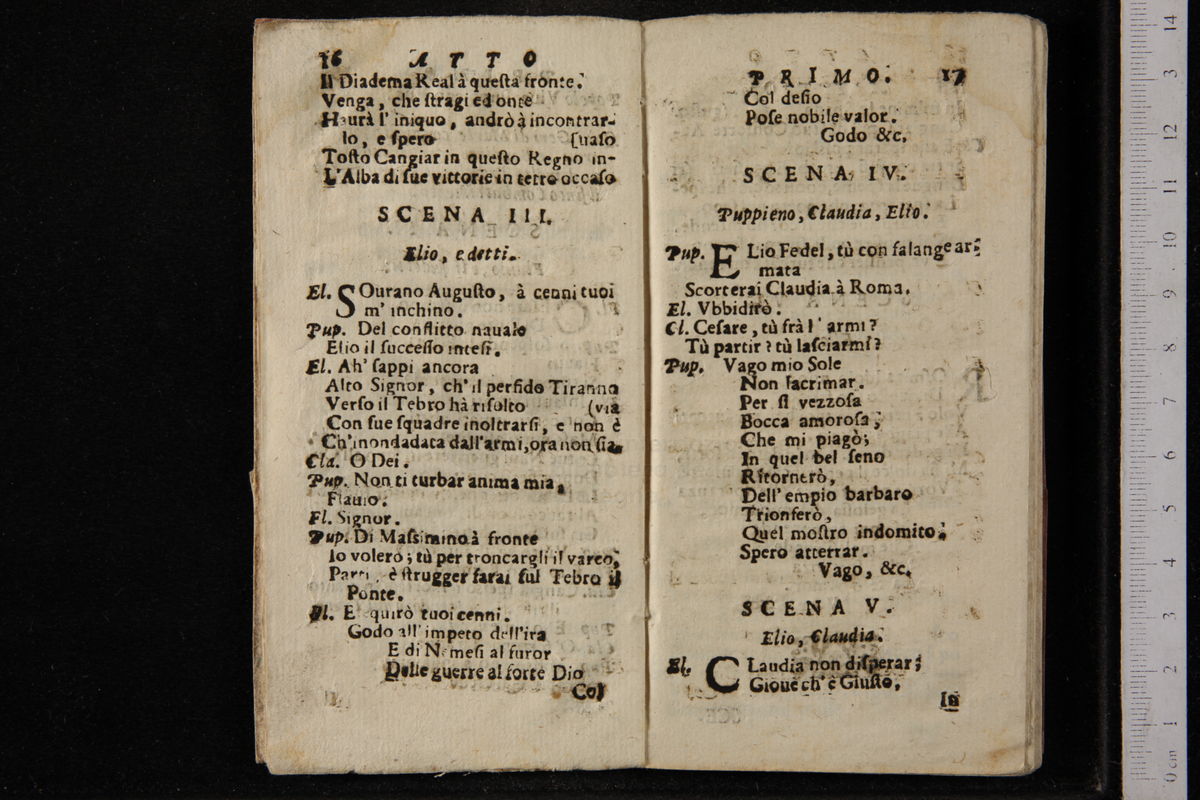 16 ATTO
Il Diadema Real à queſta fronte.
Venga, che ſtragi ed onte
Haurà l' iniquo, andrò à incontrar-
lo, e ſpero (ſuaſo
Toſto Cangiar in queſto Regno in-
L'Alba di ſue vittorie in tetro occaſo
SCENA III.
Elio, e detti.
El. SOurano Auguſto, à cenni tuoi
m' inchino.
Pup. Del conflitto nauale
Elio il ſucceſſo inteſi.
El. Ah' ſappi ancora
Alto Signor, ch' il perfido Tiranno
Verſo il Tebro hà riſolto (via
Con ſue ſquadre inoltrarſi, e non è
Ch'inondadata dall'armi, ora non ſia.
Cla. O Dei.
Pup. Non ti turbar anima mia,
Flauio.
Fl. Signor.
Pup. Di Maſsimino à fronte
Io volerò; tù per troncargli il varco,
Parti, è ſtrugger farai ſul Tebro il
Ponte.
Fl. Eſequirò tuoi cenni.
Godo all' impeto dell'ira
E di Nemeſi al furor
Delle guerre al forte Dio
Col
PRIMO. 17
Col deſio
Poſe nobile valor.
Godo &c.
SCENA IV.
Puppieno, Claudia, Elio.
Pup. ELio Fedel, tù con falange ar-
mata
Scorterai Claudia à Roma.
El. Vbbidirò.
Cl. Ceſare, tù frà l' armi?
Tù partir? tù laſciarmi?
Pup. Vago mio Sole
Non lacrimar.
Per ſi vezzoſa
Bocca amoroſa;
Che mi piagò;
In quel bel ſeno
Ritornerò,
Dell' empio barbaro
Trionferò,
Quel moſtro indomito;
Spero atterrar.
Vago, &c.
SCENA V.
Elio, Claudia.
El. CLaudia non diſperar;
Gioue ch' è Giuſto,
In